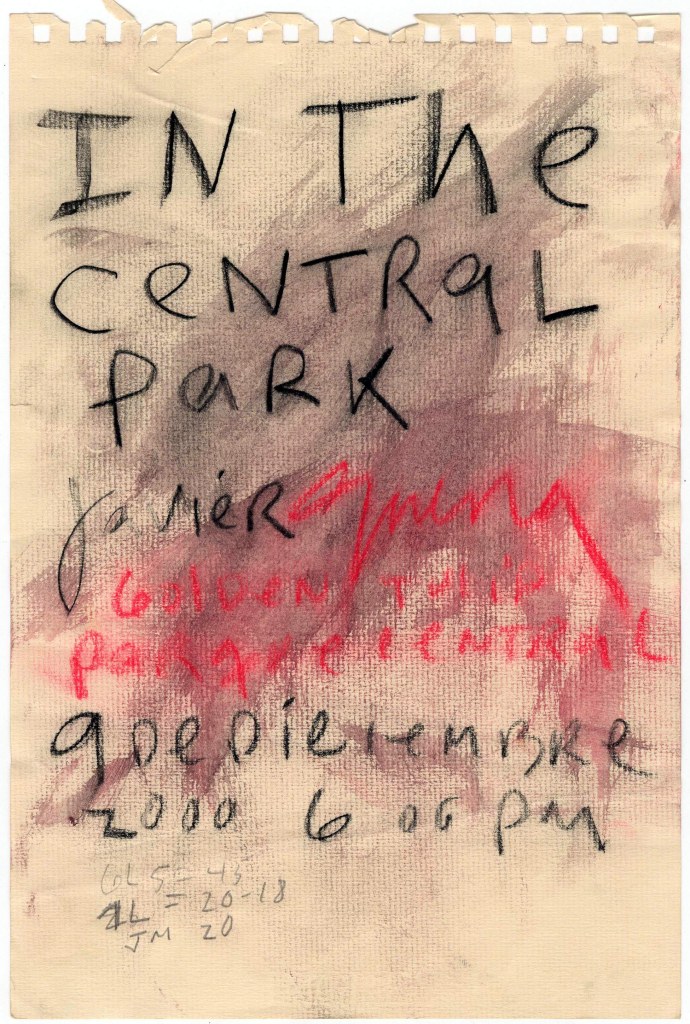 IN The
CeNTRaL
paRK
Javier Guerra
Golden Tulip
parque CENTRaL
9 De Diciembre
2000 6 00 pm
GL 5 = 45
1L = 20-18
JM 20